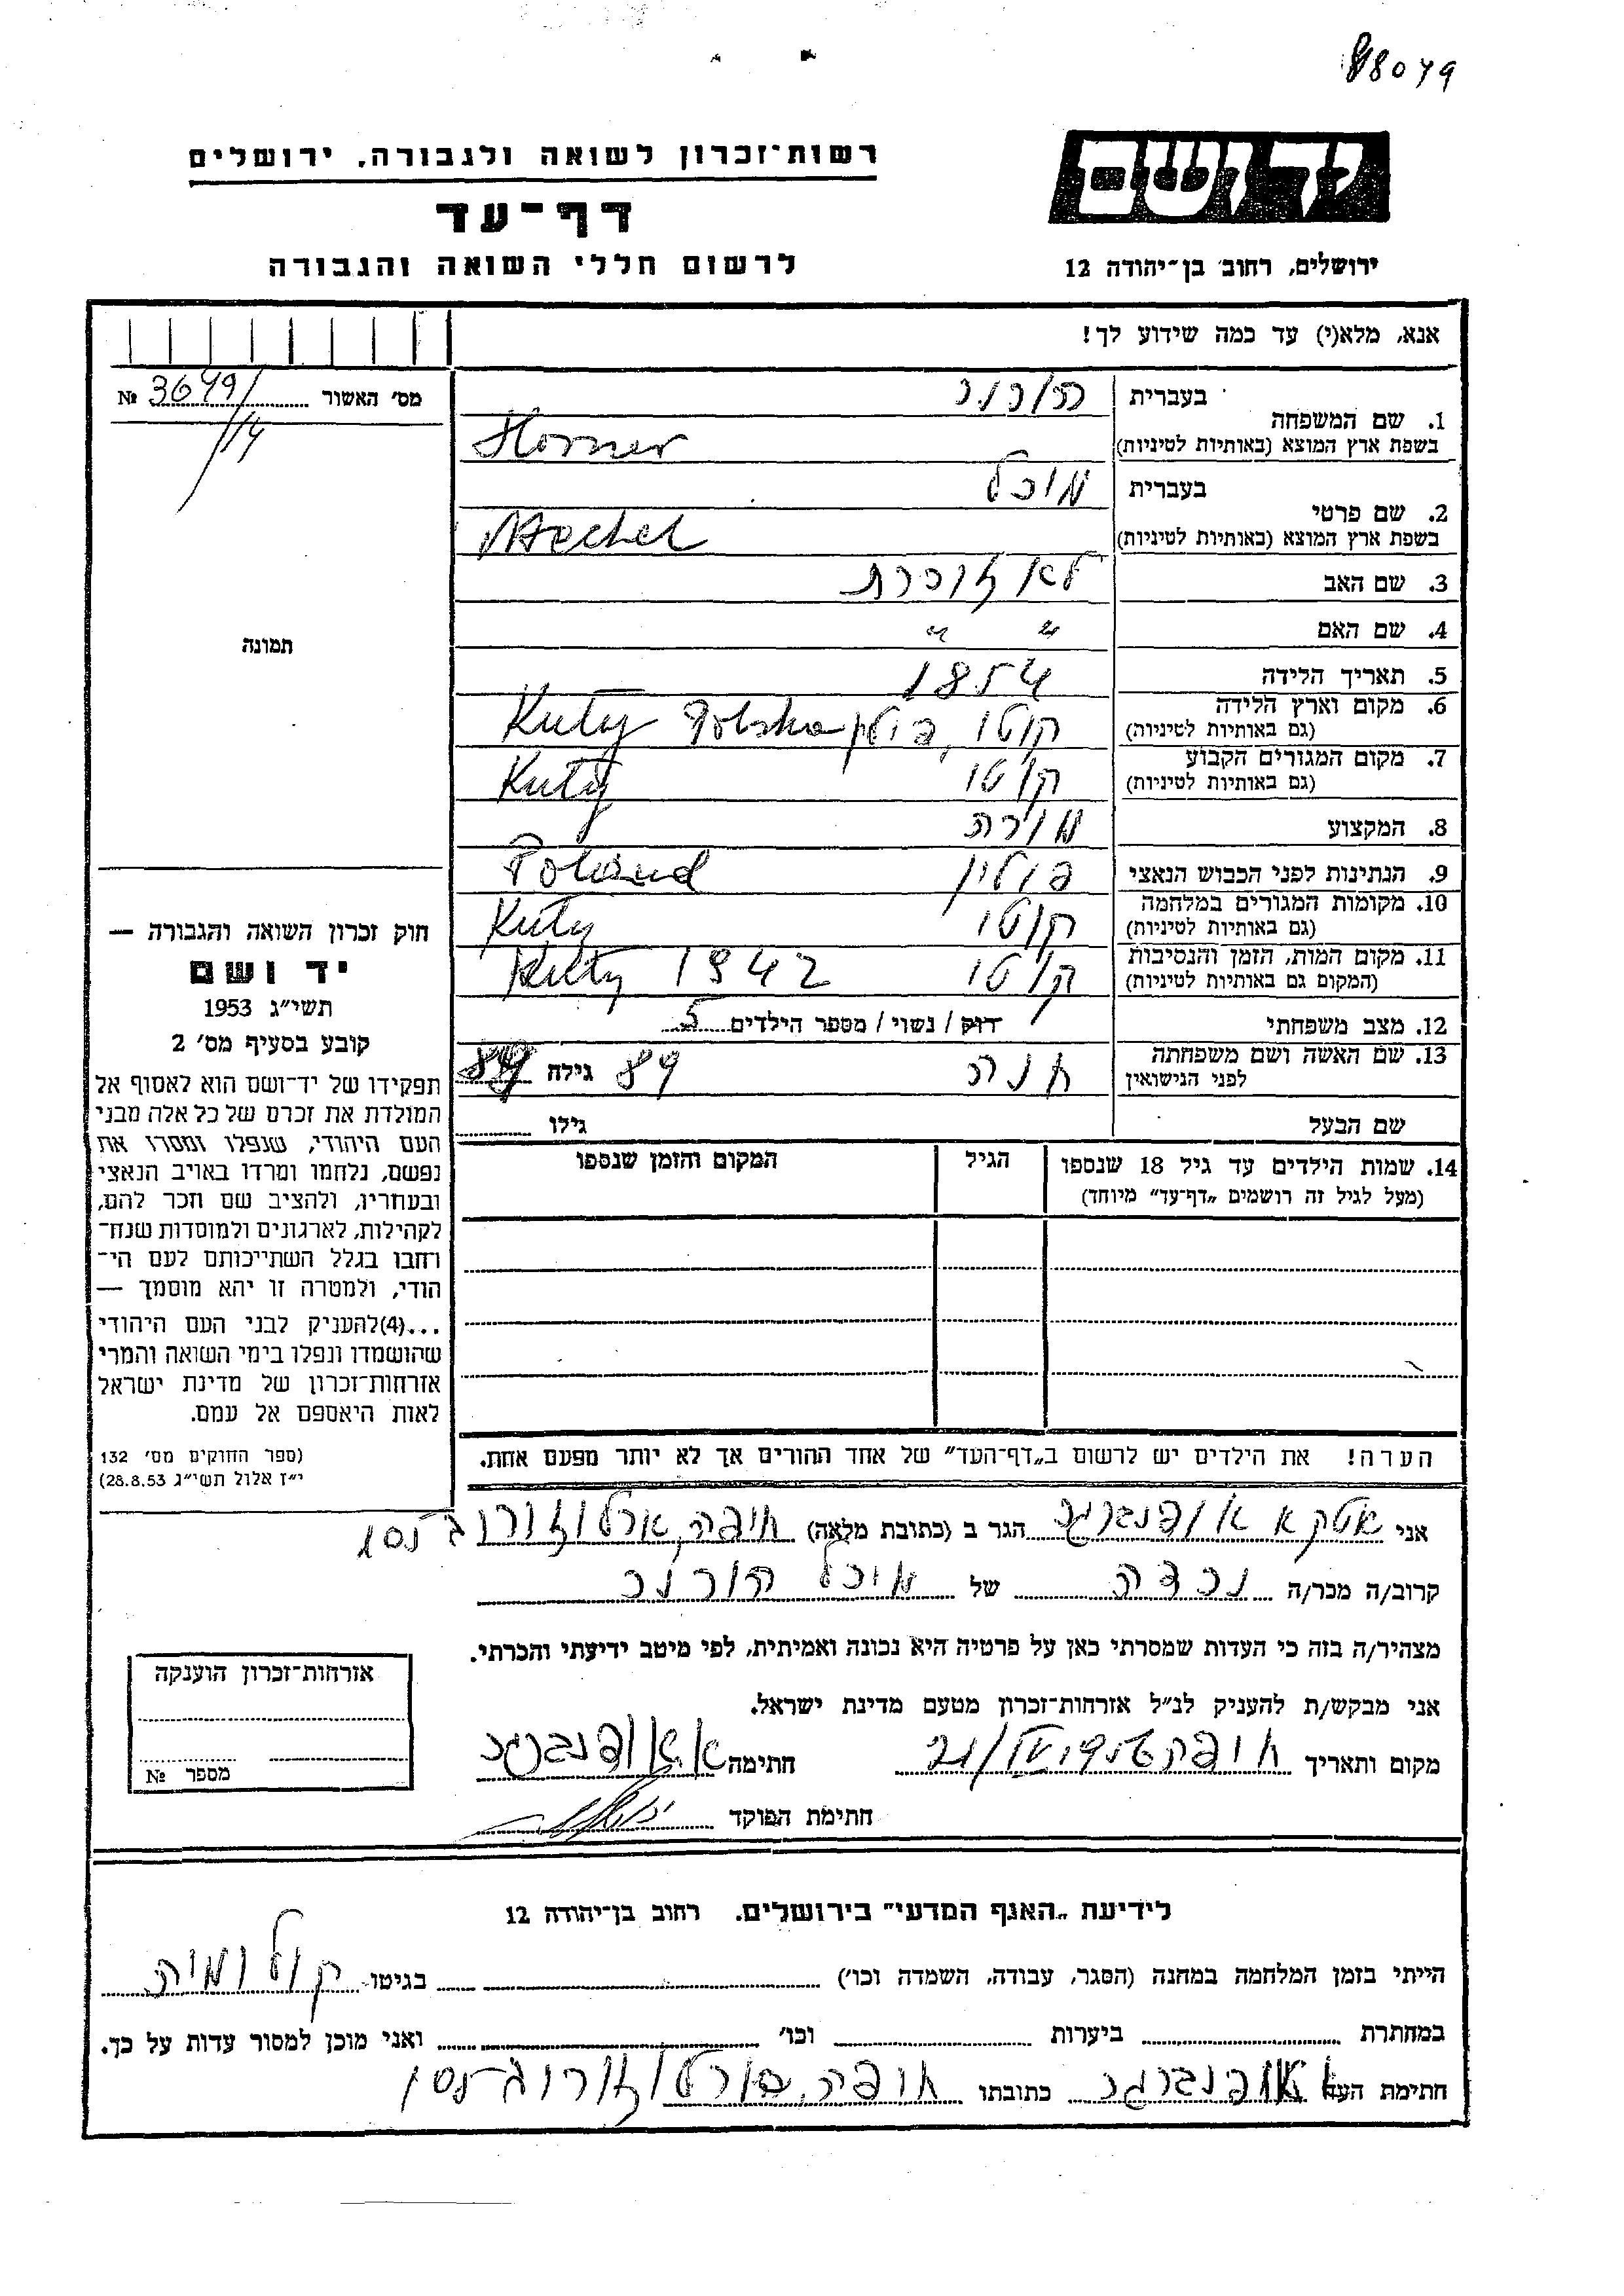 88079
יד ושם
רשות־זכרון לשואה ולגבורה, ירושלים
דף־עד
לרשום חללי השואה והגבורה
ירושלים, רחוב בן־יהודה 12
אנא, מלא(י) עד כמה שידוע לך!
מס׳ האשור № 3649/
114
1. שם המשפחה בעברית הורנר
בשפת ארץ המוצא (באותיות לטיניות) Horner
2. שם פרטי בעברית מיכל
בשפת ארץ המוצא (באותיות לטיניות) Mechel
3. שם האב לא זוכרת
4. שם האם " "
5. תאריך הלידה 1854
6. מקום וארץ הלידה (גם באותיות לטיניות) קוטי, פולין Kuty Polska
7. מקום המגורים הקבוע (גם באותיות לטיניות) קוטי Kuty
8. המקצוע מורה
9. הנתינות לפני הכבוש הנאצי פולין Poland
10. מקומות המגורים במלחמה (גם באותיות לטיניות) קוטי Kuty
11. מקום המות, הזמן והנסיבות (המקום גם באותיות לטיניות) קוטי Kuty 1942
12. מצב משפחתי רווק / נשוי / מספר הילדים 5
13. שם האשה ושם משפחתה לפני הנישואין חנה 84 גילה
שם הבעל גילו
14. שמות הילדים עד גיל 18 שנספו הגיל המקום והזמן שנספו
(מעל לגיל זה רושמים „דף־עד" מיוחד)
תמונה
חוק זכרון השואה והגבורה —
יד ושם
תשי״ג 1953
קובע בסעיף מס׳ 2
תפקידו של יד־ושם הוא לאסוף אל
המולדת את זכרם של כל אלה מבני
העם היהודי, שנפלו ומסרו את
נפשם, נלחמו ומרדו באויב הנאצי
ובעוזריו, ולהציב שם וזכר להם,
לקהילות, לארגונים ולמוסדות שנח־
רבו בגלל השתייכותם לעם הי־
הודי, ולמטרה זו יהא מוסמך —
...(4)להעניק לבני העם היהודי
שהושמדו ונפלו בימי השואה והמרי
אזרחות־זכרון של מדינת ישראל
לאות היאספם אל עמם.
(ספר החוקים מס׳ 132
י״ז אלול תשי״ג 28.8.53)
הערה! את הילדים יש לרשום ב„דף־העד" של אחד ההורים אך לא יותר מפעם אחת.
אני אטקא אופנברגר הגר ב (כתובת מלאה) חיפה, ארלוזורוב
קרוב/ה מכר/ה נכדה של מיכל הורנר
מצהיר/ה בזה כי העדות שמסרתי כאן על פרטיה היא נכונה ואמיתית, לפי מיטב ידיעתי והכרתי.
אני מבקש/ת להעניק לנ״ל אזרחות־זכרון מטעם מדינת ישראל.
מקום ותאריך חיפה חתימה א. אופנברגר
חתימת הפוקד
אזרחות־זכרון הוענקה
מספר №
לידיעת „האגף המדעי" בירושלים. רחוב בן־יהודה 12
הייתי בזמן המלחמה במחנה (הסגר, עבודה, השמדה וכו׳) בגיטו קולומיה
במחתרת ביערות וכו׳ ואני מוכן למסור עדות על כך.
חתימת העד אופנברגר כתובתו חיפה,